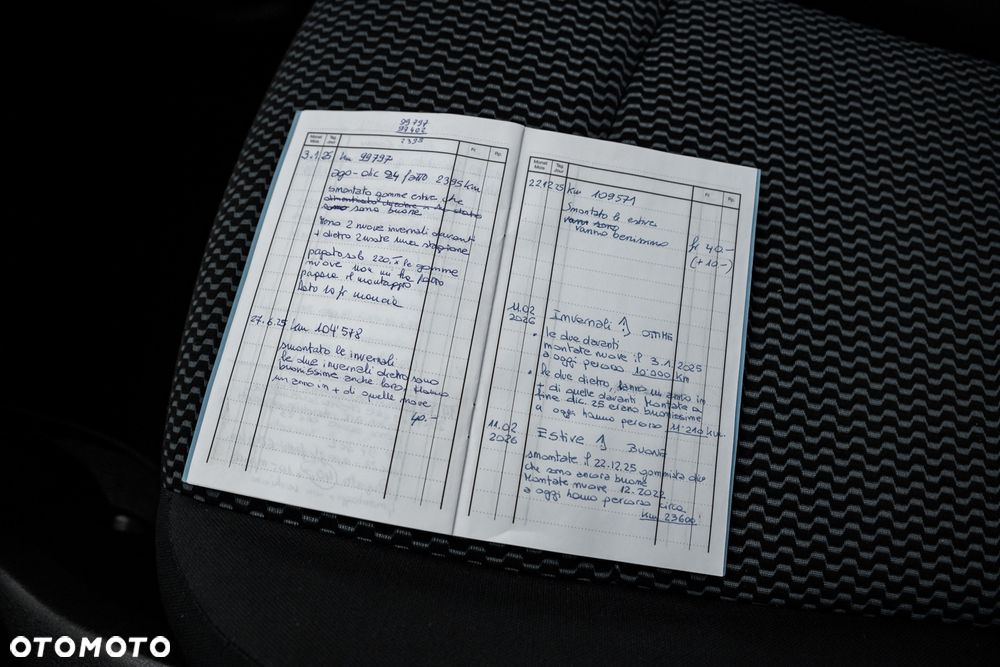 99797
97402
2395
Monat Mois Tag Jour Fr. Rp.
3.1 25 km 99797
ago-dic 24 fatto 2395 km
smontato gomme estive che
sono buone
2 nuove invernali davanti
+ dietro 2 usate una stagione
pagato solo 220.- x le gomme
nuove non mi ha fatto
pagare il montaggio
dato 10 fr mancia
27.6.25 km 104'578
smontato le invernali
le due invernali dietro sono
buonissime anche loro, hanno
un anno in + di quelle nuove
40.-
Monat Mois Tag Jour Fr. Rp.
22.12 25 km 109571
Smontato le estive
vanno sono
vanno benissimo
fr 40.-
(+10-)
11.02
2026
Invernali :) OTTIME
• le due davanti
montate nuove il 3.1.2025
a oggi percorso 10'000 km
• le due dietro, hanno un anno in
+ di quelle davanti Montate a
fine dic. 25 erano buonissime
a oggi hanno percorso 11'210 km.
11.02
2026
Estive :) BUONE
smontate il 22.12.25 gommista dice
che sono ancora buone
Montate nuove 12.2022
a oggi hanno percorso circa
km 23600!
OTOMOTO